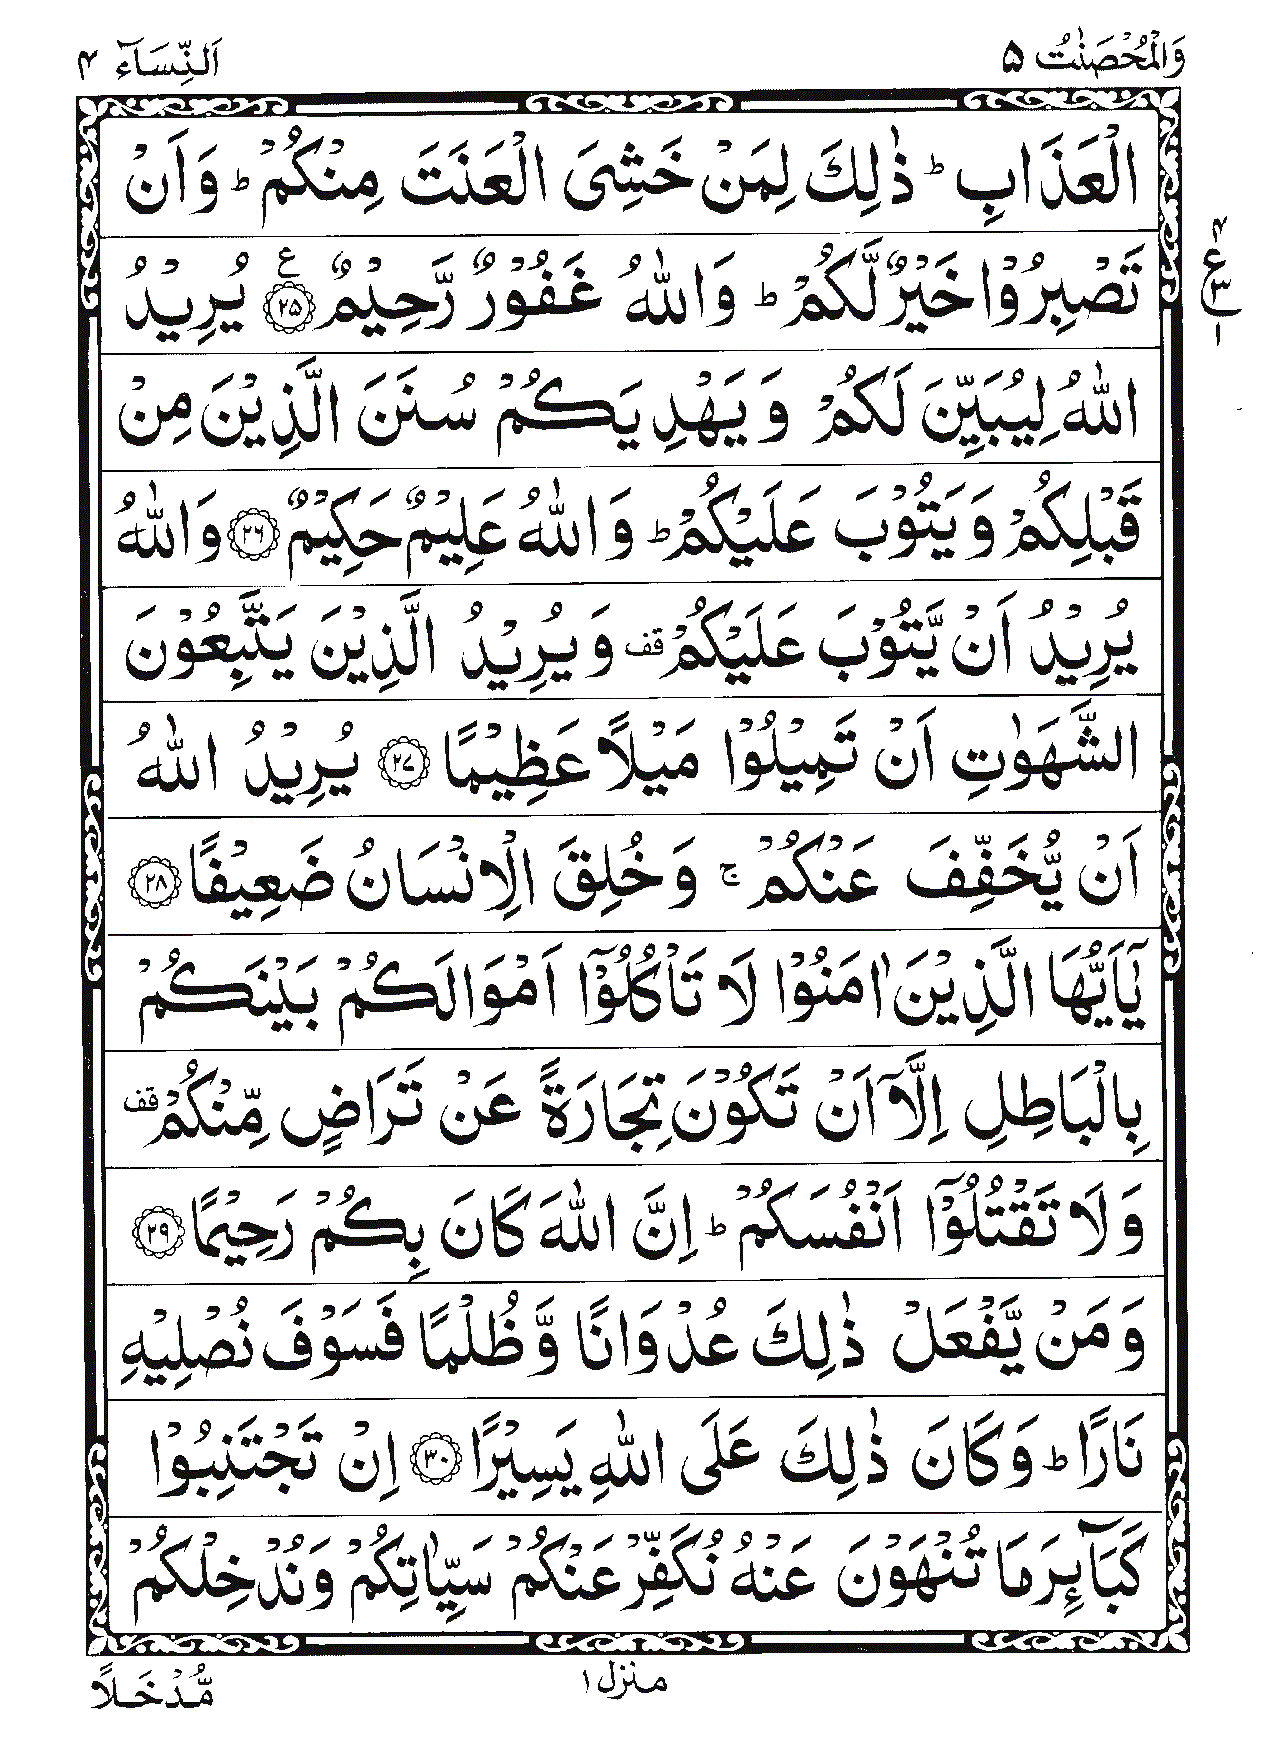 وَالْمُحْصَنٰتُ ۵
اَلنِّسَآء ۴
الْعَذَابِ ؕ ذٰلِكَ لِمَنْ خَشِیَ الْعَنَتَ مِنْكُمْ ؕ وَاَنْ
تَصْبِرُوْا خَیْرٌ لَّكُمْ ؕ وَاللّٰهُ غَفُوْرٌ رَّحِیْمٌ ﴿۲۵﴾ ع یُرِیْدُ
ع ۴ ۳ ۱
اللّٰهُ لِیُبَیِّنَ لَكُمْ وَیَهْدِیَكُمْ سُنَنَ الَّذِیْنَ مِنْ
قَبْلِكُمْ وَیَتُوْبَ عَلَیْكُمْ ؕ وَاللّٰهُ عَلِیْمٌ حَكِیْمٌ ﴿۲۶﴾ وَاللّٰهُ
یُرِیْدُ اَنْ یَّتُوْبَ عَلَیْكُمْ قف وَیُرِیْدُ الَّذِیْنَ یَتَّبِعُوْنَ
الشَّهَوٰتِ اَنْ تَمِیْلُوْا مَیْلًا عَظِیْمًا ﴿۲۷﴾ یُرِیْدُ اللّٰهُ
اَنْ یُّخَفِّفَ عَنْكُمْ ۚ وَخُلِقَ الْاِنْسَانُ ضَعِیْفًا ﴿۲۸﴾
یٰۤاَیُّهَا الَّذِیْنَ اٰمَنُوْا لَا تَاْكُلُوْۤا اَمْوَالَكُمْ بَیْنَكُمْ
بِالْبَاطِلِ اِلَّاۤ اَنْ تَكُوْنَ تِجَارَةً عَنْ تَرَاضٍ مِّنْكُمْ قف
وَلَا تَقْتُلُوْۤا اَنْفُسَكُمْ ؕ اِنَّ اللّٰهَ كَانَ بِكُمْ رَحِیْمًا ﴿۲۹﴾
وَمَنْ یَّفْعَلْ ذٰلِكَ عُدْوَانًا وَّظُلْمًا فَسَوْفَ نُصْلِیْهِ
نَارًا ؕ وَكَانَ ذٰلِكَ عَلَی اللّٰهِ یَسِیْرًا ﴿۳۰﴾ اِنْ تَجْتَنِبُوْا
كَبَآئِرَ مَا تُنْهَوْنَ عَنْهُ نُكَفِّرْ عَنْكُمْ سَیِّاٰتِكُمْ وَنُدْخِلْكُمْ
منزل ۱
مُّدْخَلًا